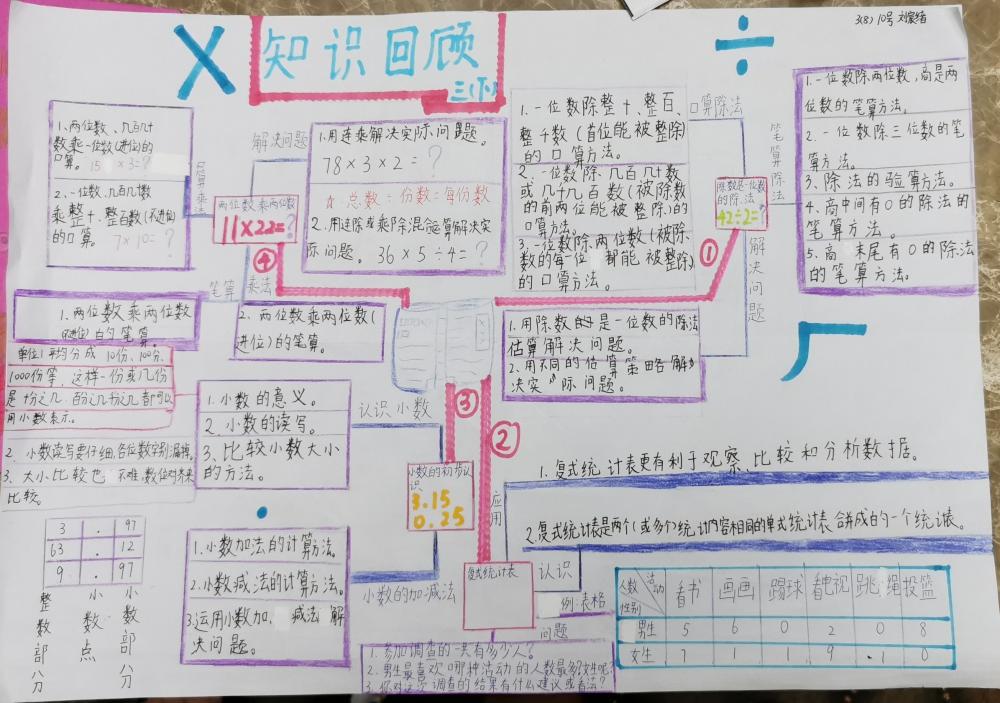 3(8)10号
×
知识回顾
三(下)
÷
1.两位数、几百几十
数乘一位数(进位)的
口算。 15 × 3=?
2.一位数、几百几十数
乘整十、整百数(不进位)
的口算。 7×10=?
口算乘法
解决问题
两位数乘两位数
11×22=?
④
1.用连乘解决实际问题。
78×3×2=?
☆总数÷份数=每份数
2.用连除或乘除混合运算解决实
际问题。 36×5÷4=?
笔算 乘法
1.两位数乘两位数
(不进位)的笔算。
2.两位数乘两位数(
进位)的笔算。
1.一位数除整十、整百、
整千数(首位能被整除)
的口算方法。
2.一位数除几百几十数
或几千几百数(被除数
的前两位能被整除)的
口算方法。
3.一位数除两位数(被除
数的每一位都能被整除)
的口算方法。
口算除法
除数是一位数
的除法
42÷2=?
①
笔算除法
解决问题
1.一位数除两位数,商是两
位数的笔算方法。
2.一位数除三位数的笔
算方法。
3.除法的验算方法。
4.商中间有0的除法的
笔算方法。
5.商末尾有0的除法
的笔算方法。
1.用除数的是一位数的除法
估算解决问题。
2.用不同的估算策略解
决实际问题。
单位1平均分成10份、100份、
1000份等,这样一份或几份
是十分之几、百分之几
用小数表示。
2、小数读写要仔细,各位数字别漏掉。
3、大小比较也不难,数位对齐来
比较。
1.小数的意义。
2.小数的读写。
3.比较小数大小
的方法。
认识小数
③
小数的初步认
识
3.15
0.25
②
3 . 97
63 . 12
9 . 97
整数部分
小数点
小数部分
1.小数加法的计算方法。
2.小数减法的计算方法。
3.运用小数加、减法解
决问题。
小数的加减法
应用
1.复式统计表更有利于观察、比较和分析数据。
复式统计表
认识
2.复式统计表是两个(或多个)统计内容相同的单式统计表合并成的一个统计表。
例:表格
问题
1.参加调查的一共有多少人?
2.男生最喜欢哪种活动的人数最多?女生呢?
3.你对这次调查的结果有什么建议或看法?
人数 活动 性别 看书 画画 踢球 看电视 跳绳 投篮
男生 5 6 0 2 0 8
女生 7 1 1 9 1 0